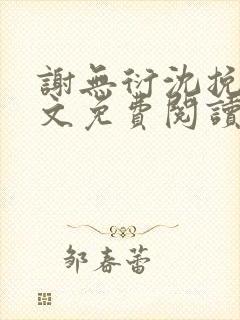 謝無衍沈挽
文免費閱讀
邹春蕾